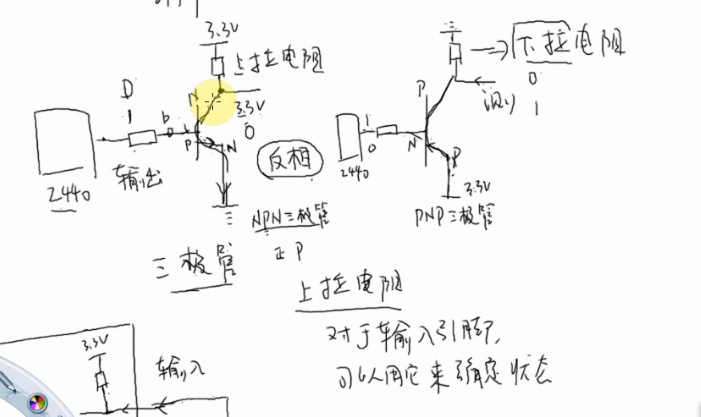 3.3V
上拉电阻
D
1
b
N
3.3V
0
P
N
2440
输出
反相
NPN三极管
正P
三极管
下拉电阻
0
测
1
P
1
0
N
P
2440
3.3V
PNP三极管
上拉电阻
对于输入引脚,
可以用它来确定状态
3.3V
输入